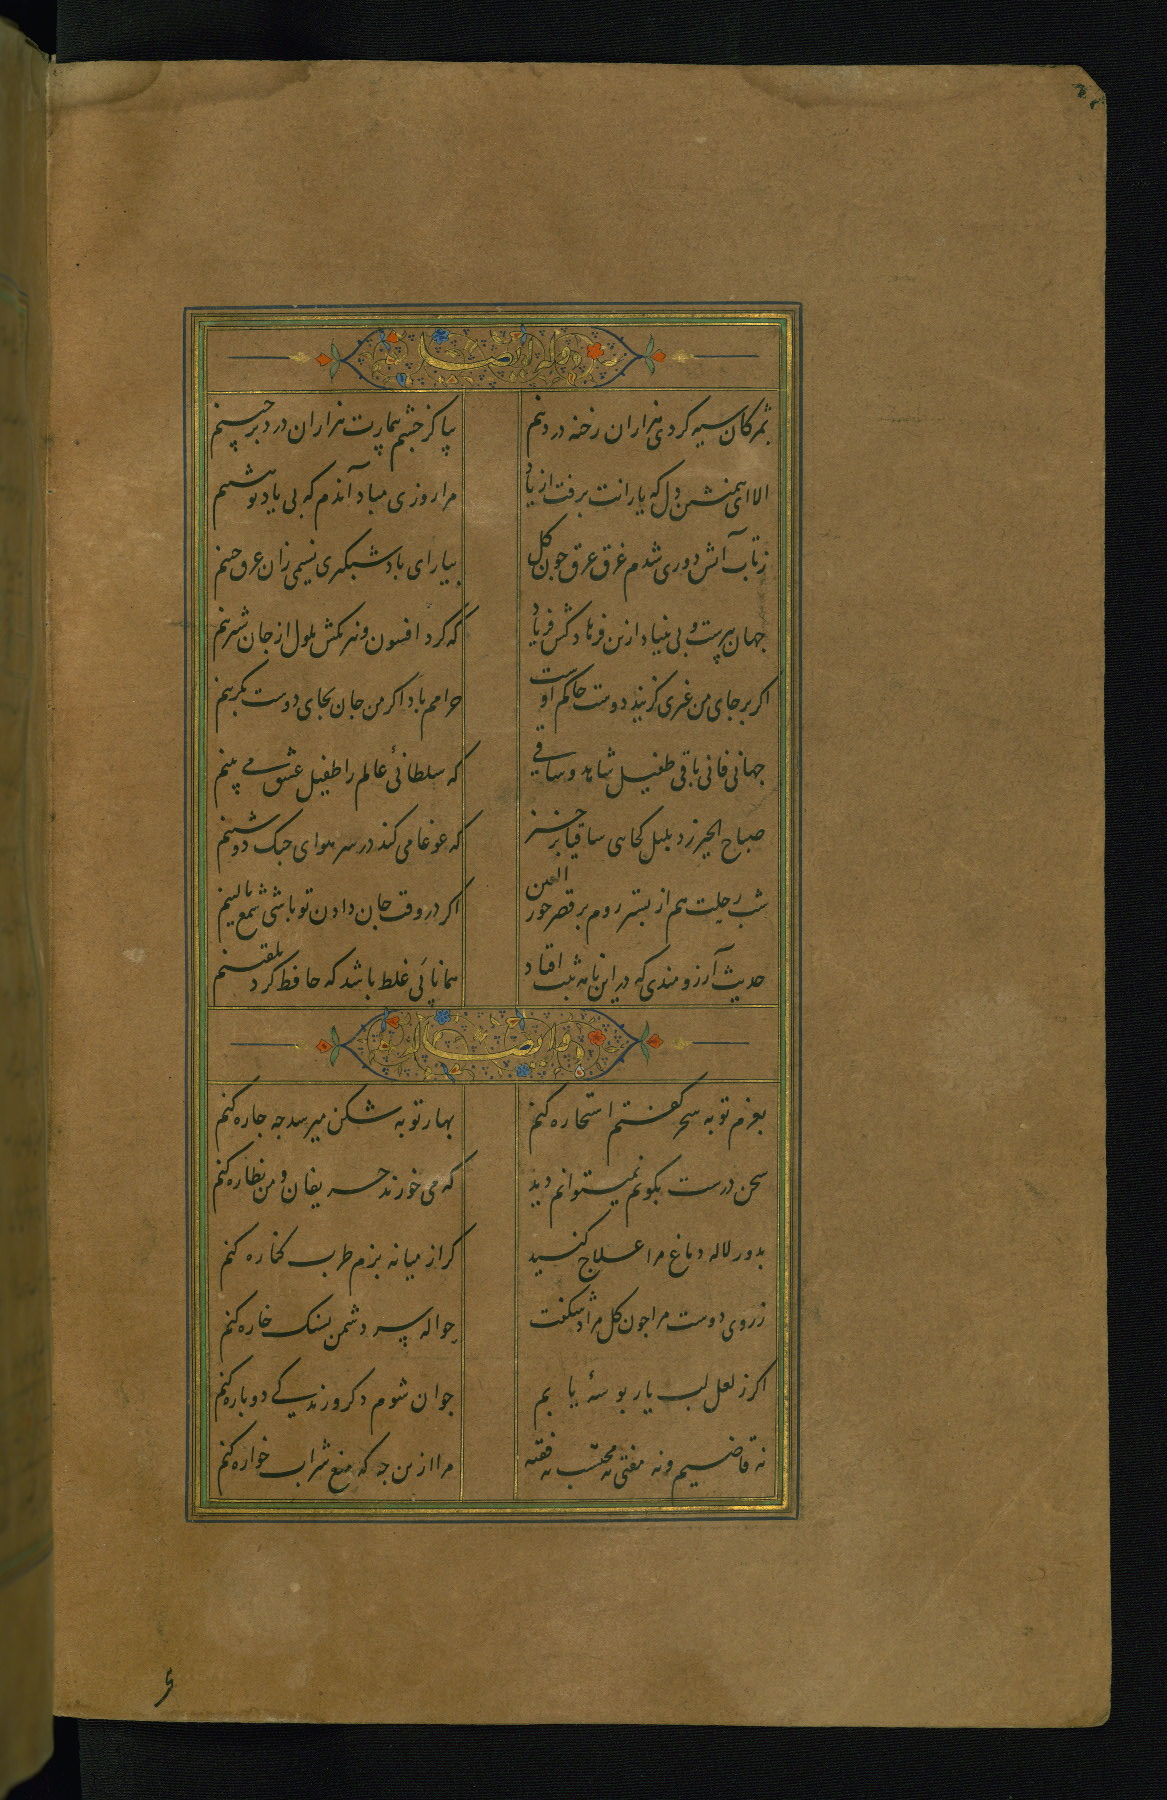 وله ایضا
بمژگان سیه کردی هزاران رخنه در دینم
بیا کز چشم بیمارت هزاران درد برچینم
الا ای همنشین دل که یارانت برفت از یاد
مرا روزی مباد آندم که بی یاد تو بنشینم
ز تاب آتش دوری شدم غرق عرق چون گل
بیار ای باد شبگیری نسیمی زان عرق چینم
جهان پیرست و بی بنیاد ازین فرهاد کش فریاد
که کرد افسون و نیرنگش ملول از جان شیرینم
اگر بر جای من غیری گزیند دوست حاکم اوست
حرامم باد اگر من جان بجای دوست بگزینم
جهانی فانی باقی طفیل شاهد و ساقی
که سلطانی عالم را طفیل عشق می بینم
صباح الخیر زد بلبل کجایی ساقیا برخیز
که غوغا می کند در سر هوای چنگ دوشینم
شب رحلت هم از بستر روم بر قصر حور العین
اگر در وقت جان دادن تو باشی شمع بالینم
حدیث آرزومندی که در این نامه ثبت افتاد
همانا بی غلط باشد که حافظ کرد تلقینم
وله ایضا
بعزم توبه سحر گفتم استخاره کنم
بهار توبه شکن میرسد چه چاره کنم
سخن درست بگویم نمیتوانم دید
که می خورند حریفان و من نظاره کنم
بدور لاله دماغ مرا علاج کنید
گر از میانه بزم طرب کناره کنم
ز روی دوست مرا چون گل مراد شکفت
حواله سر دشمن بسنگ خاره کنم
اگر ز لعل لب یار بوسهٔ یابم
جوان شوم دگر و زندگی دوباره کنم
نه قاضیم و نه مفتی نه محتسب نه فقیه
مرا ازین چه که منع شراب خواره کنم